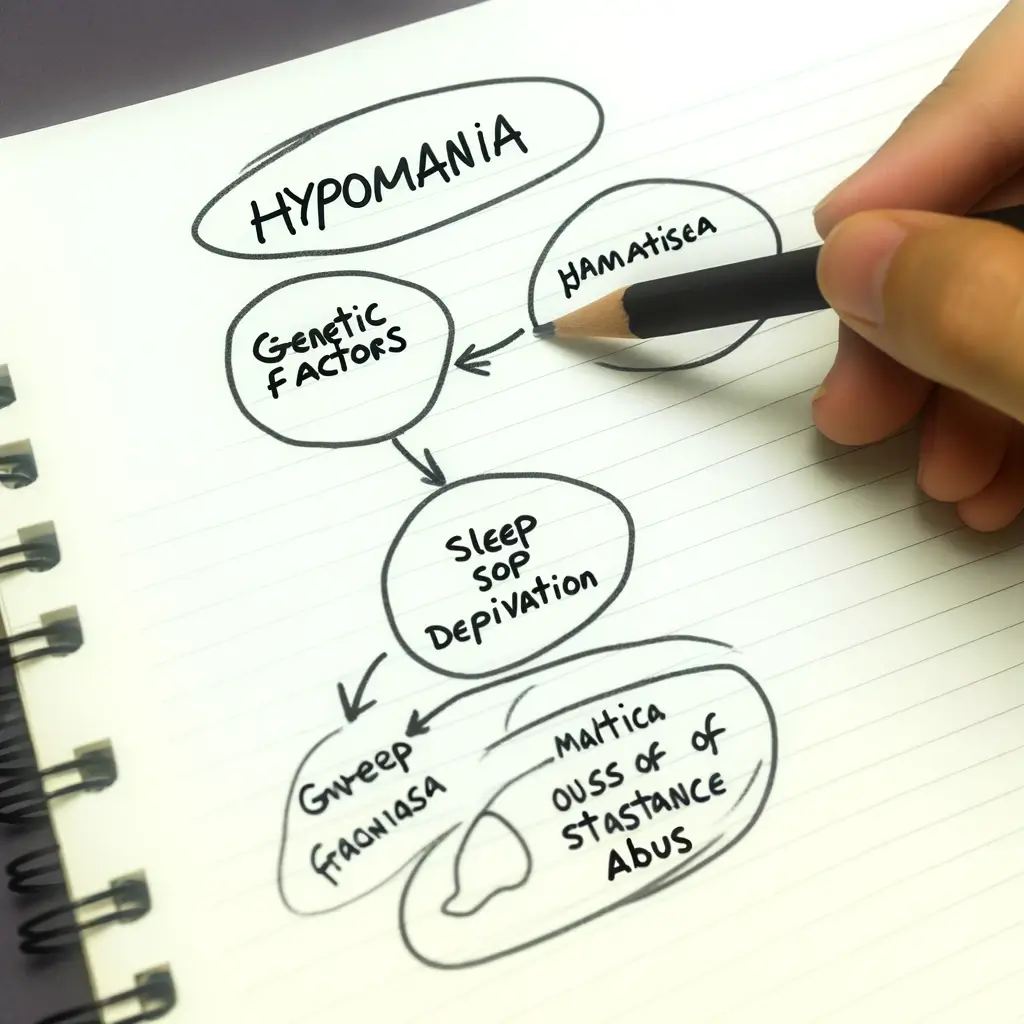 HYPOMANIA
HAMATISEA
GENETIC
FACTORS
SLEEP
SOP
DEPIVATION
GWEEP
MALTICA
OUSS OF OF
STASTANCE
ABUS